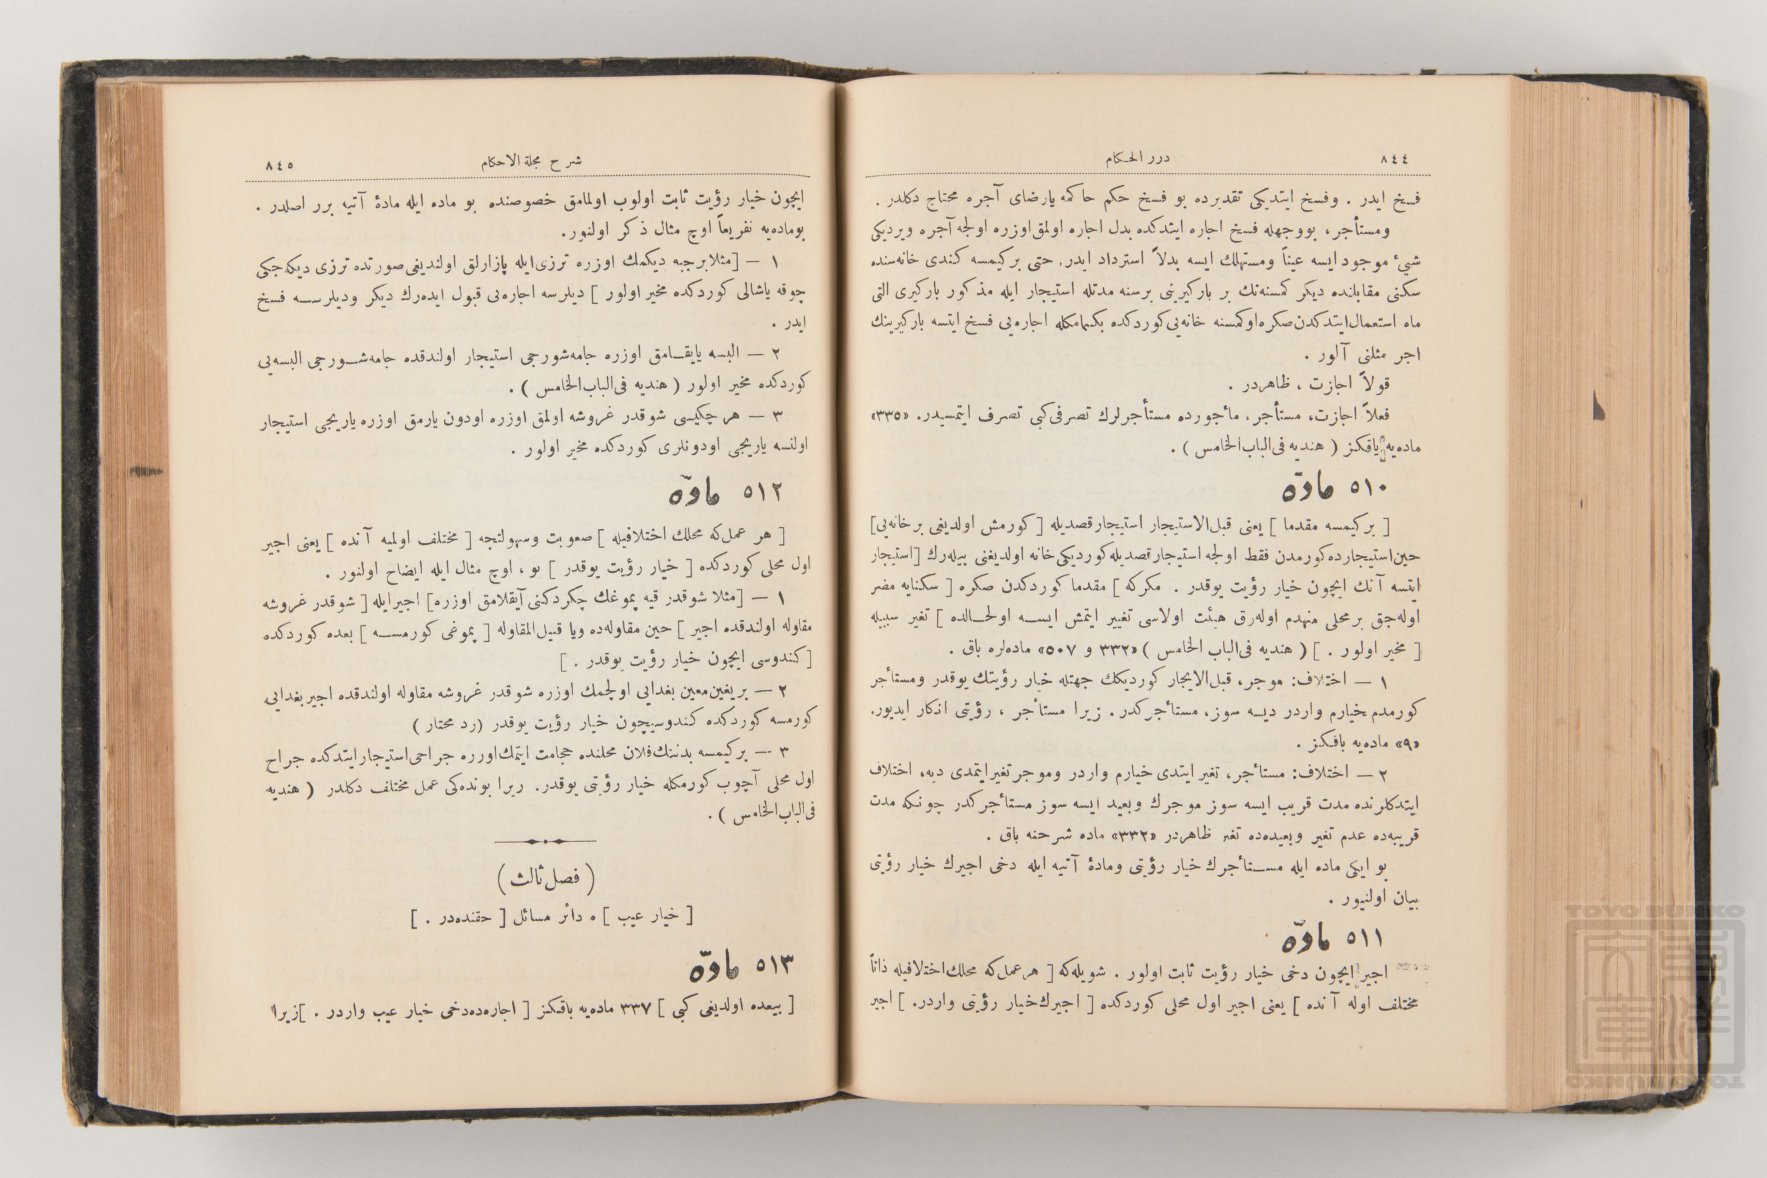 ٨٤٤
درر الحكام
فسخ ايدر . وفسخ ايتديكی تقديرده بو فسخ حكم حاكمه يا رضای آجره محتاج دكلدر .
ومستأجر، بووجهله فسخ اجاره ايتدكده بدل اجاره اولمق اوزره اولجه آجره ويرديكی
شیء موجود ايسه عيناً ومستهلك ايسه بدلاً استرداد ايدر. حتی بركيمسه كندی خانه‌سنده
سكنی مقابلنده ديكر كمسنه‌نك بر باركيرينی برسنه مدتله استيجار ايله مذكور باركيری التی
ماه استعمال ايتدكدن صكره او كمسنه خانه‌يی كوردكده بكنمامكله اجاره‌يی فسخ ايتسه باركيرينك
اجر مثلنی آلور .
قولاً اجازت ، ظاهردر .
فعلاً اجازت، مستأجر، مأجورده مستأجرلرك تصرفی كبی تصرف ايتمسيدر. «٣٣٥»
ماده‌يه باقكز ( هنديه فی الباب الخامس ) .
٥١٠ مادّه
[ بركيمسه مقدما ] يعنی قبل الاستيجار استيجار قصديله [ كورمش اولديغی بر خانه‌يی ]
حين استيجارده كورمدن فقط اولجه استيجار قصديله كورديكی خانه اولديغنی بيله‌رك [ استيجار
ايتسه آنك ايچون خيار رؤيت يوقدر . مكركه ] مقدما كوردكدن صكره [ سكنايه مضر
اوله‌جق بر محلی منهدم اوله‌رق هيئت اولاسی تغيير ايتمش ايسه اولحالده ] تغير سببيله
[ مخير اولور . ] ( هنديه فی الباب الخامس ) «٣٣٢ و ٥٠٧» ماده‌لره باق .
١ — اختلاف: موجر، قبل الايجار كورديكك جهتله خيار رؤيتك يوقدر ومستأجر
كورمدم خيارم واردر ديسه سوز، مستأجركدر . زيرا مستأجر ، رؤيتی انكار ايديور.
«٩» ماده‌يه باقكز .
٢ — اختلاف: مستأجر، تغير ايتدی خيارم واردر وموجر تغير ايتمدی ديه، اختلاف
ايتدكلرنده مدت قريب ايسه سوز موجرك وبعيد ايسه سوز مستأجركدر چونكه مدت
قريبه‌ده عدم تغير وبعيده‌ده تغير ظاهردر «٣٣٢» ماده شرحنه باق .
بو ايكی ماده ايله مستأجرك خيار رؤيتی ومادۀ آتيه ايله دخی اجيرك خيار رؤيتی
بيان اولنيور .
٥١١ مادّه
اجير ايچون دخی خيار رؤيت ثابت اولور . شويله‌كه [ هر عمل‌كه محلك اختلافيله ذاتاً
مختلف اوله آنده ] يعنی اجير اول محلی كوردكده [ اجيرك خيار رؤيتی واردر. ] اجير
شرح مجلة الاحكام
٨٤٥
ايچون خيار رؤيت ثابت اولوب اولمامق خصوصنده بو ماده ايله مادۀ آتيه برر اصلدر .
بوماده‌يه تفريعاً اوچ مثال ذكر اولنور.
١ — [ مثلا برجبه ديكمك اوزره ترزی ايله پازارلق اولنديغی صورتده ترزی ديكه‌جكی
چوقه ياشالی كوردكده مخير اولور ] ديلرسه اجاره‌يی قبول ايده‌رك ديكر وديلرسه فسخ
ايدر .
٢ — البسه يايقامق اوزره جامه‌شورجی استيجار اولندقده جامه‌شورجی البسه‌يی
كوردكده مخير اولور ( هنديه فی الباب الخامس ) .
٣ — هر چكيسی شوقدر غروشه اولمق اوزره اودون يارمق اوزره ياريجی استيجار
اولنسه ياريجی اودونلری كوردكده مخير اولور .
٥١٢ مادّه
[ هر عمل‌كه محلك اختلافيله ] صعوبت وسهولتجه [ مختلف اولميه آنده ] يعنی اجير
اول محلی كوردكده [ خيار رؤيت يوقدر ] بو ، اوچ مثال ايله ايضاح اولنور .
١ — [ مثلا شوقدر قيه پموغك چكردكنی آيقلامق اوزره ] اجير ايله [ شوقدر غروشه
مقاوله اولندقده اجير ] حين مقاوله‌ده ويا قبيل المقاوله [ پموغی كورمسه ] بعده كوردكده
[ كندوسی ايچون خيار رؤيت يوقدر . ]
٢ — بريغين معين بغدايی اولچمك اوزره شوقدر غروشه مقاوله اولندقده اجير بغدايی
كورمسه كوردكده كندوسيچون خيار رؤيت يوقدر ( رد محتار )
٣ — بركيمسه بدننك فلان محلنده حجامت ايتمك اوزره جراحی استيجار ايتدكده جراح
اول محلی آچوب كورمكله خيار رؤيتی يوقدر. زيرا بونده‌كی عمل مختلف دكلدر ( هنديه
فی الباب الخامس ) .
( فصل ثالث )
[ خيار عيب ] ه دائر مسائل [ حقنده‌در . ]
٥١٣ مادّه
[ بيعده اولديغی كبی ] ٣٣٧ ماده‌يه باقكز [ اجاره‌ده دخی خيار عيب واردر . ] زيرا
TOYO BUNKO
東洋文庫
TOYO BUNKO